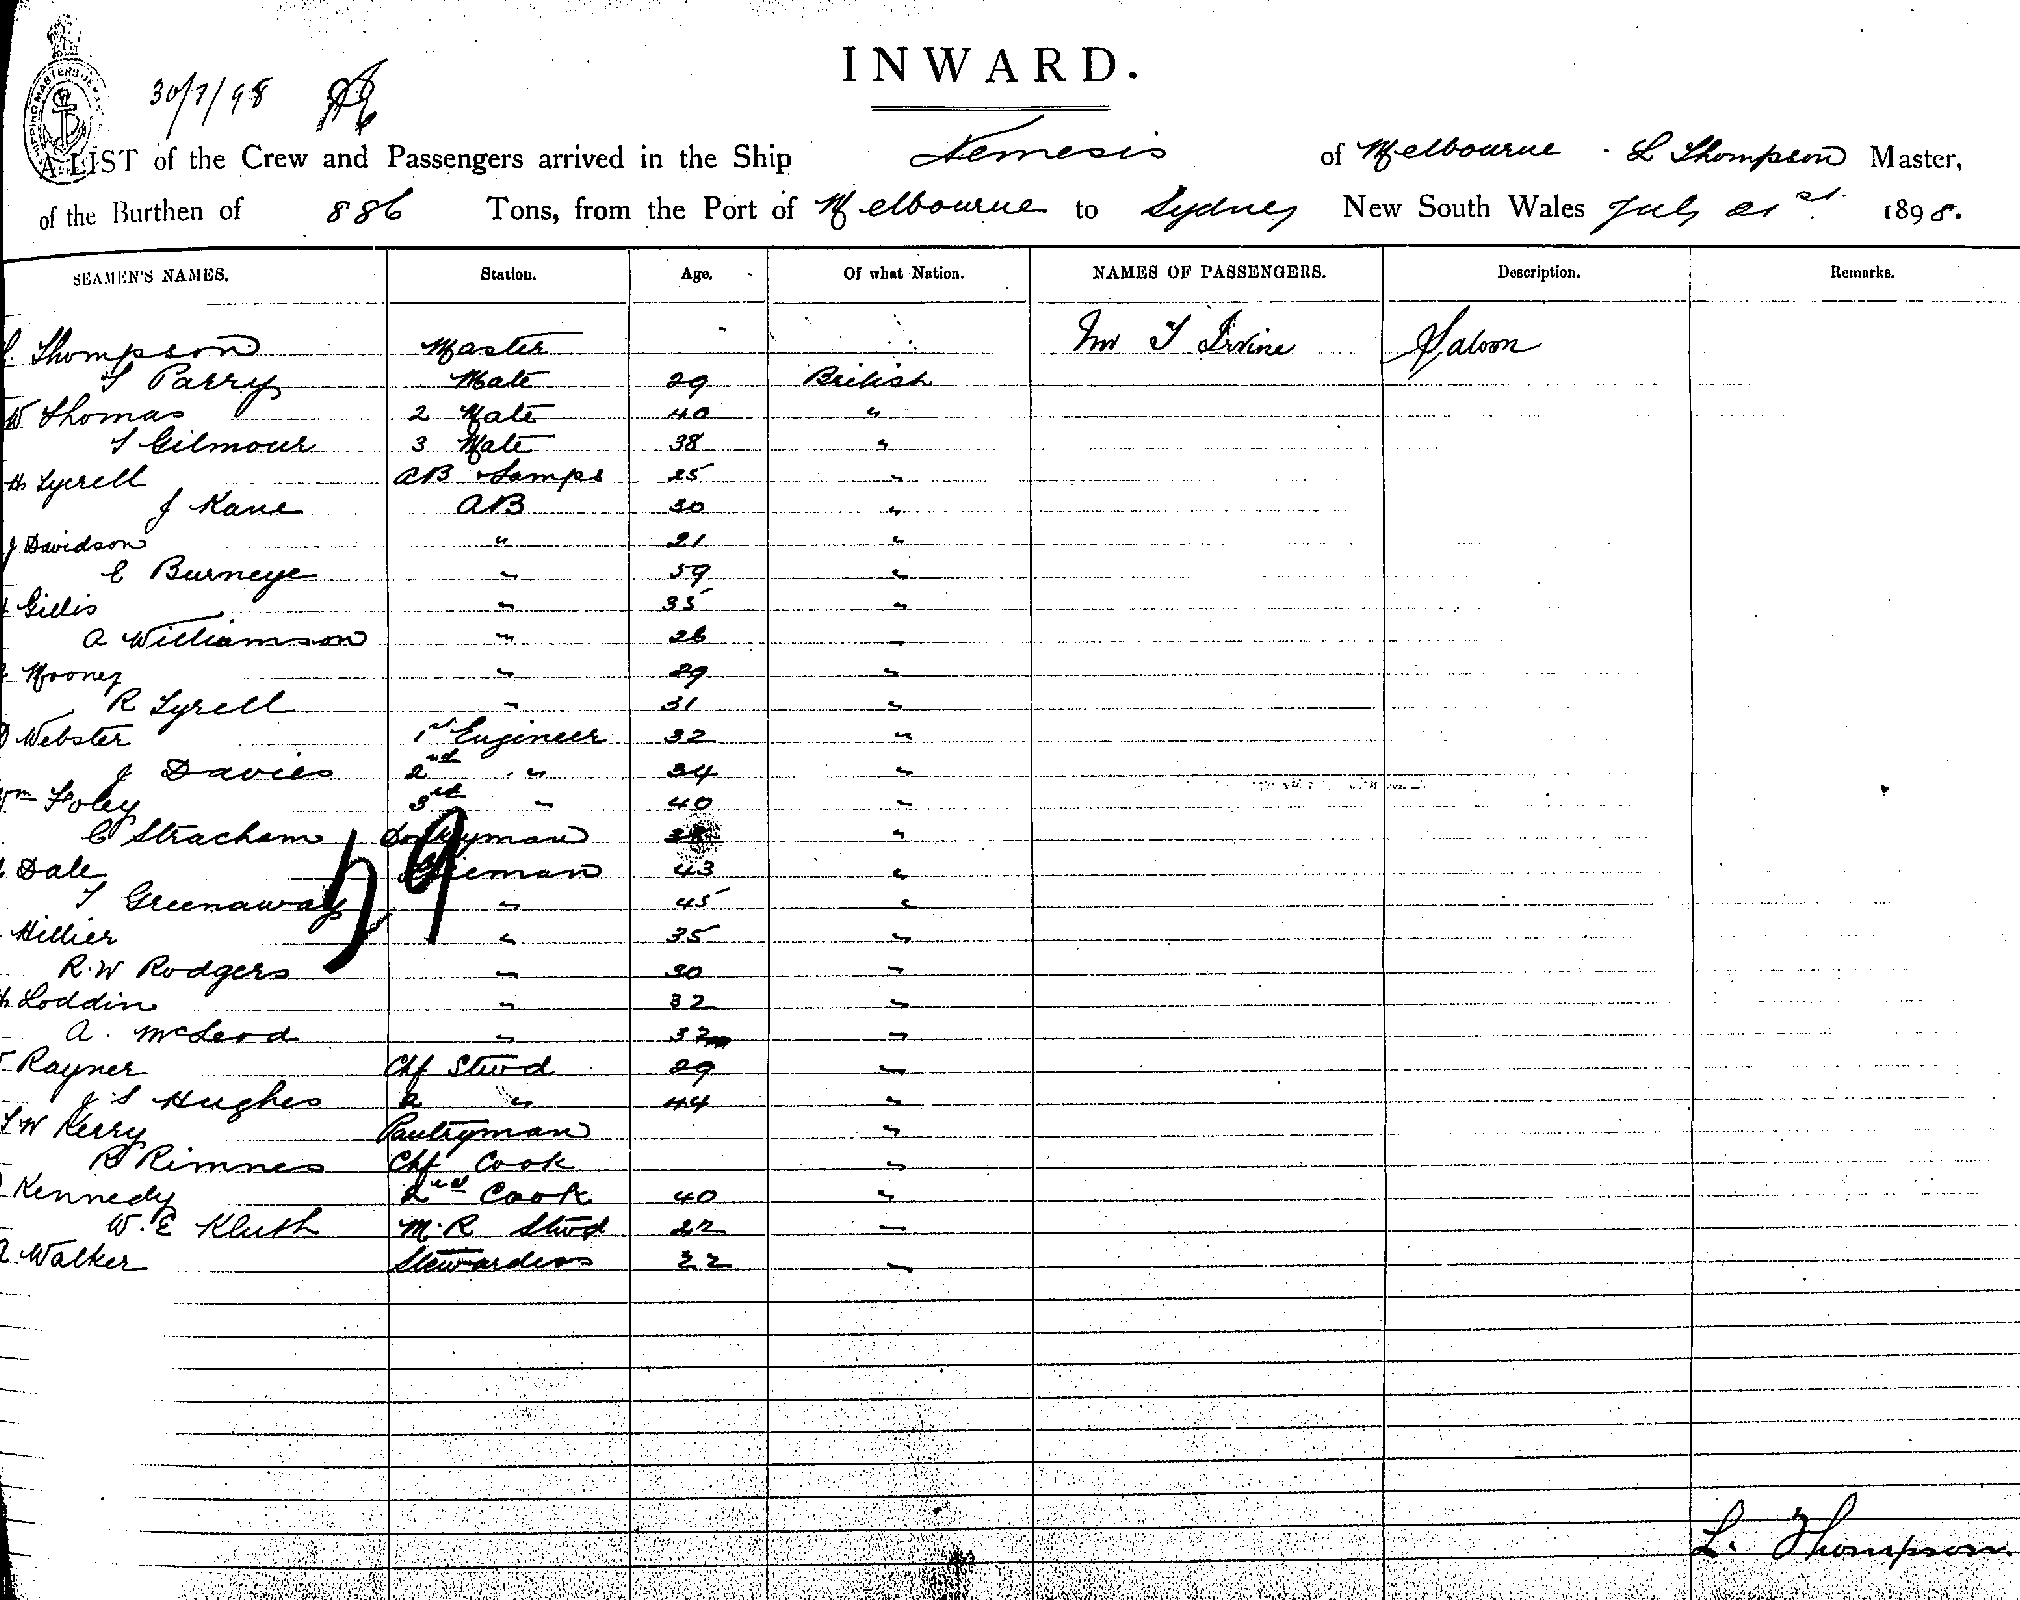 INWARD.
30/7/98
A LIST of the Crew and Passengers arrived in the Ship Nemesis of Melbourne . L Thompson Master,
of the Burthen of 886 Tons, from the Port of Melbourne to Sydney New South Wales July 21st 1898.
SEAMEN'S NAMES. Station. Age. Of what Nation. NAMES OF PASSENGERS. Description. Remarks.
L. Thompson Master Mr T Irvine Saloon
T Parry Mate 29 British
W Thomas 2 Mate 40 "
T Gilmour 3 Mate 38 "
Hy Tyrrell AB & Lamps 25 "
J Kane AB 30 "
J Davidson " 21 "
C Burneye " 59 "
Gillis " 35 "
A Williamson " 26 "
Mooney " 29 "
R Tyrell " 31 "
D Webster 1st Engineer 32 "
J Davies 2nd " 34 "
Wm Foley 3rd " 40 "
C Stracham Donkeyman "
Dale Fireman 43 "
T Greenaway " 45 "
Hillier " 35 "
R.W Rodgers " 30 "
Loddin " 32 "
A. McLeod " 32 "
Rayner Chf Stwd 29 "
J S Hughes 2 " 44 "
T W Kerry Pantryman "
R Rimnes Chf Cook "
Kennedy 2nd Cook 40 "
W. E Kluth M.R Stwd 22 "
A Walker Stewardess 32 "
59
L. Thompson.